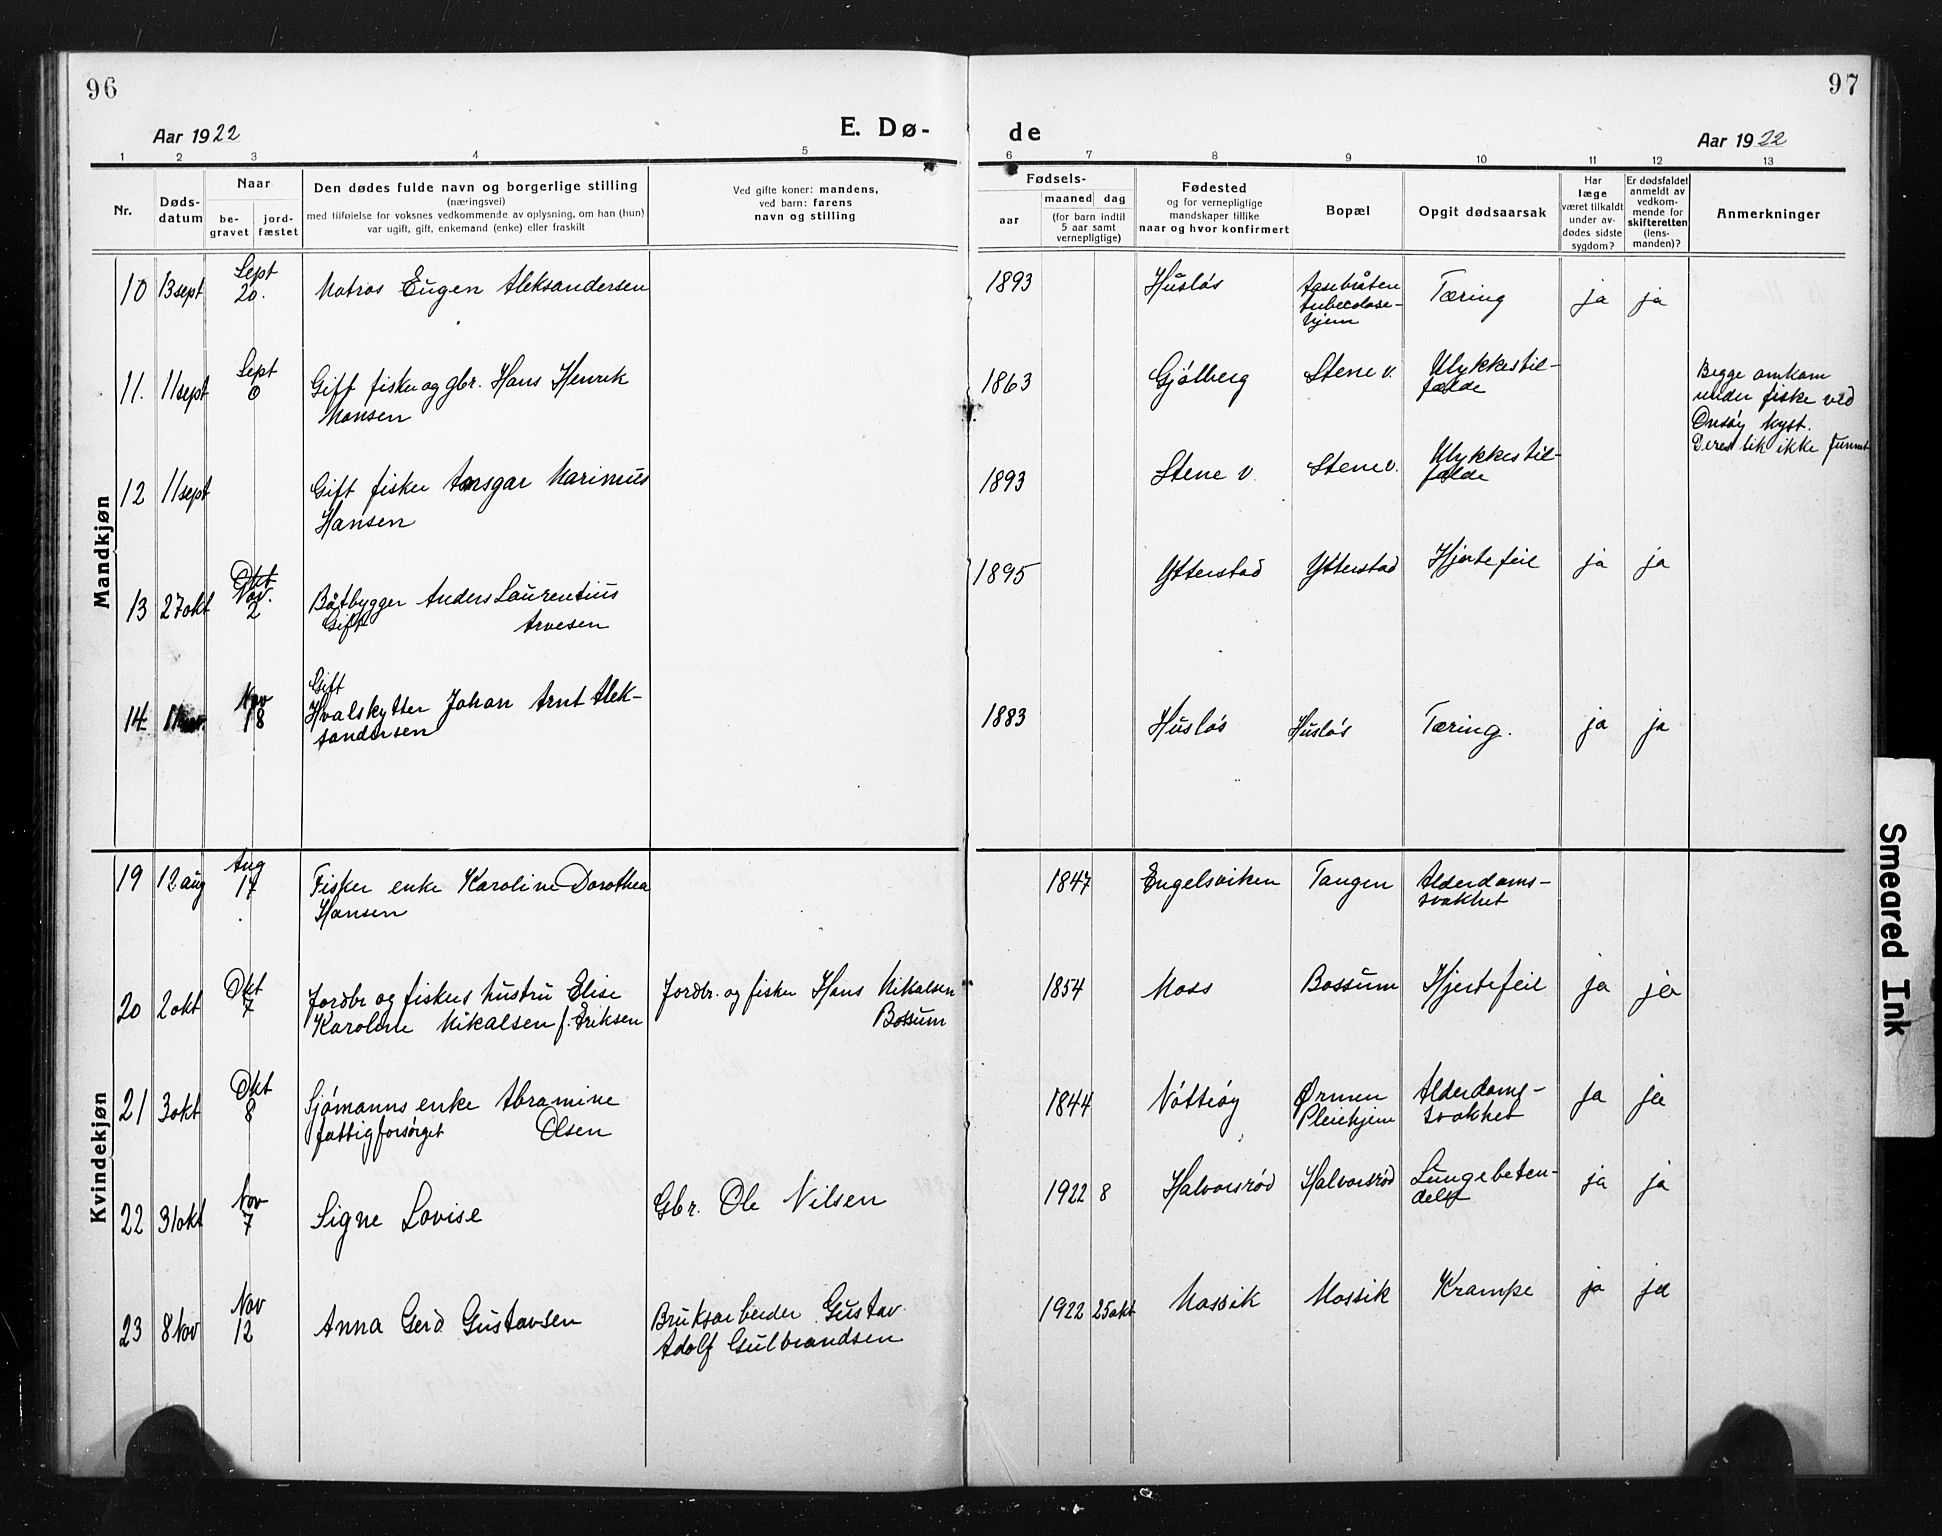 96
Aar 1922
E. Dø-
1 2 3 4 5
Nr.
Døds-
datum
Naar
be-
gravet
jord-
fæstet
Den dødes fulde navn og borgerlige stilling
(næringsvei)
med tilføielse for voksnes vedkommende av oplysning, om han (hun)
var ugift, gift, enkemand (enke) eller fraskilt
Ved gifte koner: mandens,
ved barn: farens
navn og stilling
Mandkjøn
10 13 sept Sept 20. Matros Eugen Aleksandersen
11. 11 sept Sept Gift fisker og gbr. Hans Henrik
Hansen
12 11 sept Gift fisker Ansgar Marinius
Hansen
13 27 okt Okt
Nov.
2 Båtbygger Anders Laurentius
Gift Arvesen
14 Nov
18 Gift
Hvalskytter Johan Arnt Alek-
sandersen
Kvindekjøn
19 12 aug Aug
17 Fisker enke Karoline Dorothea
Hansen
20 2 okt Okt
7 Jordbr og fiskers hustru Elise
Karoline Mikalsen f. Eriksen
Jordbr. og fisker Hans Mikalsen
Bossum
21 3 okt Okt
8 Sjømanns enke Abramine
fattigforsørget Olsen
22 31 okt Nov
7 Signe Lovise
Gbr. Ole Nilsen
23 8 Nov Nov
12 Anna Gerd Gustavsen
Bruksarbeider Gustav
Adolf Gulbrandsen
97
de
Aar 1922
6 7 8 9 10 11 12 13
Fødsels-
aar
maaned dag
(for barn indtil
5 aar samt
vernepligtige)
Fødested
og for vernepligtige
mandskaper tillike
naar og hvor konfirmert
Bopæl
Opgit dødsaarsak
Har
læge
været tilkaldt
under av-
dødes sidste
sygdom?
Er dødsfaldet
anmeldt av
vedkom-
mende for
skifteretten
(lens-
manden)?
Anmerkninger
1893 Husløs Aasebråten
tubeculose-
hjem Tæring ja ja
1863 Gjølberg Stene v. Ulykkestil-
fælde
Begge omkom
under fiske ved
Onsøy kyst.
Deres lik ikke funnet
1893 Stene v. Stene v. Ulykkestil-
fælde
1895 Ytterstad Ytterstad Hjertefeil ja ja
1883 Husløs Husløs Tæring. ja ja
1847 Engelsviken Tangen Alderdoms-
svakhet
1854 Moss Bossum Hjertefeil ja ja
1844 Nøttrøy Ørmen
Pleiehjem Alderdoms-
svakhet ja ja
1922 8 Halvorsrød Halvorsrød Lungebeten-
delse ja ja
1922 25 okt Mossik Mossik Krampe ja ja
Smeared Ink